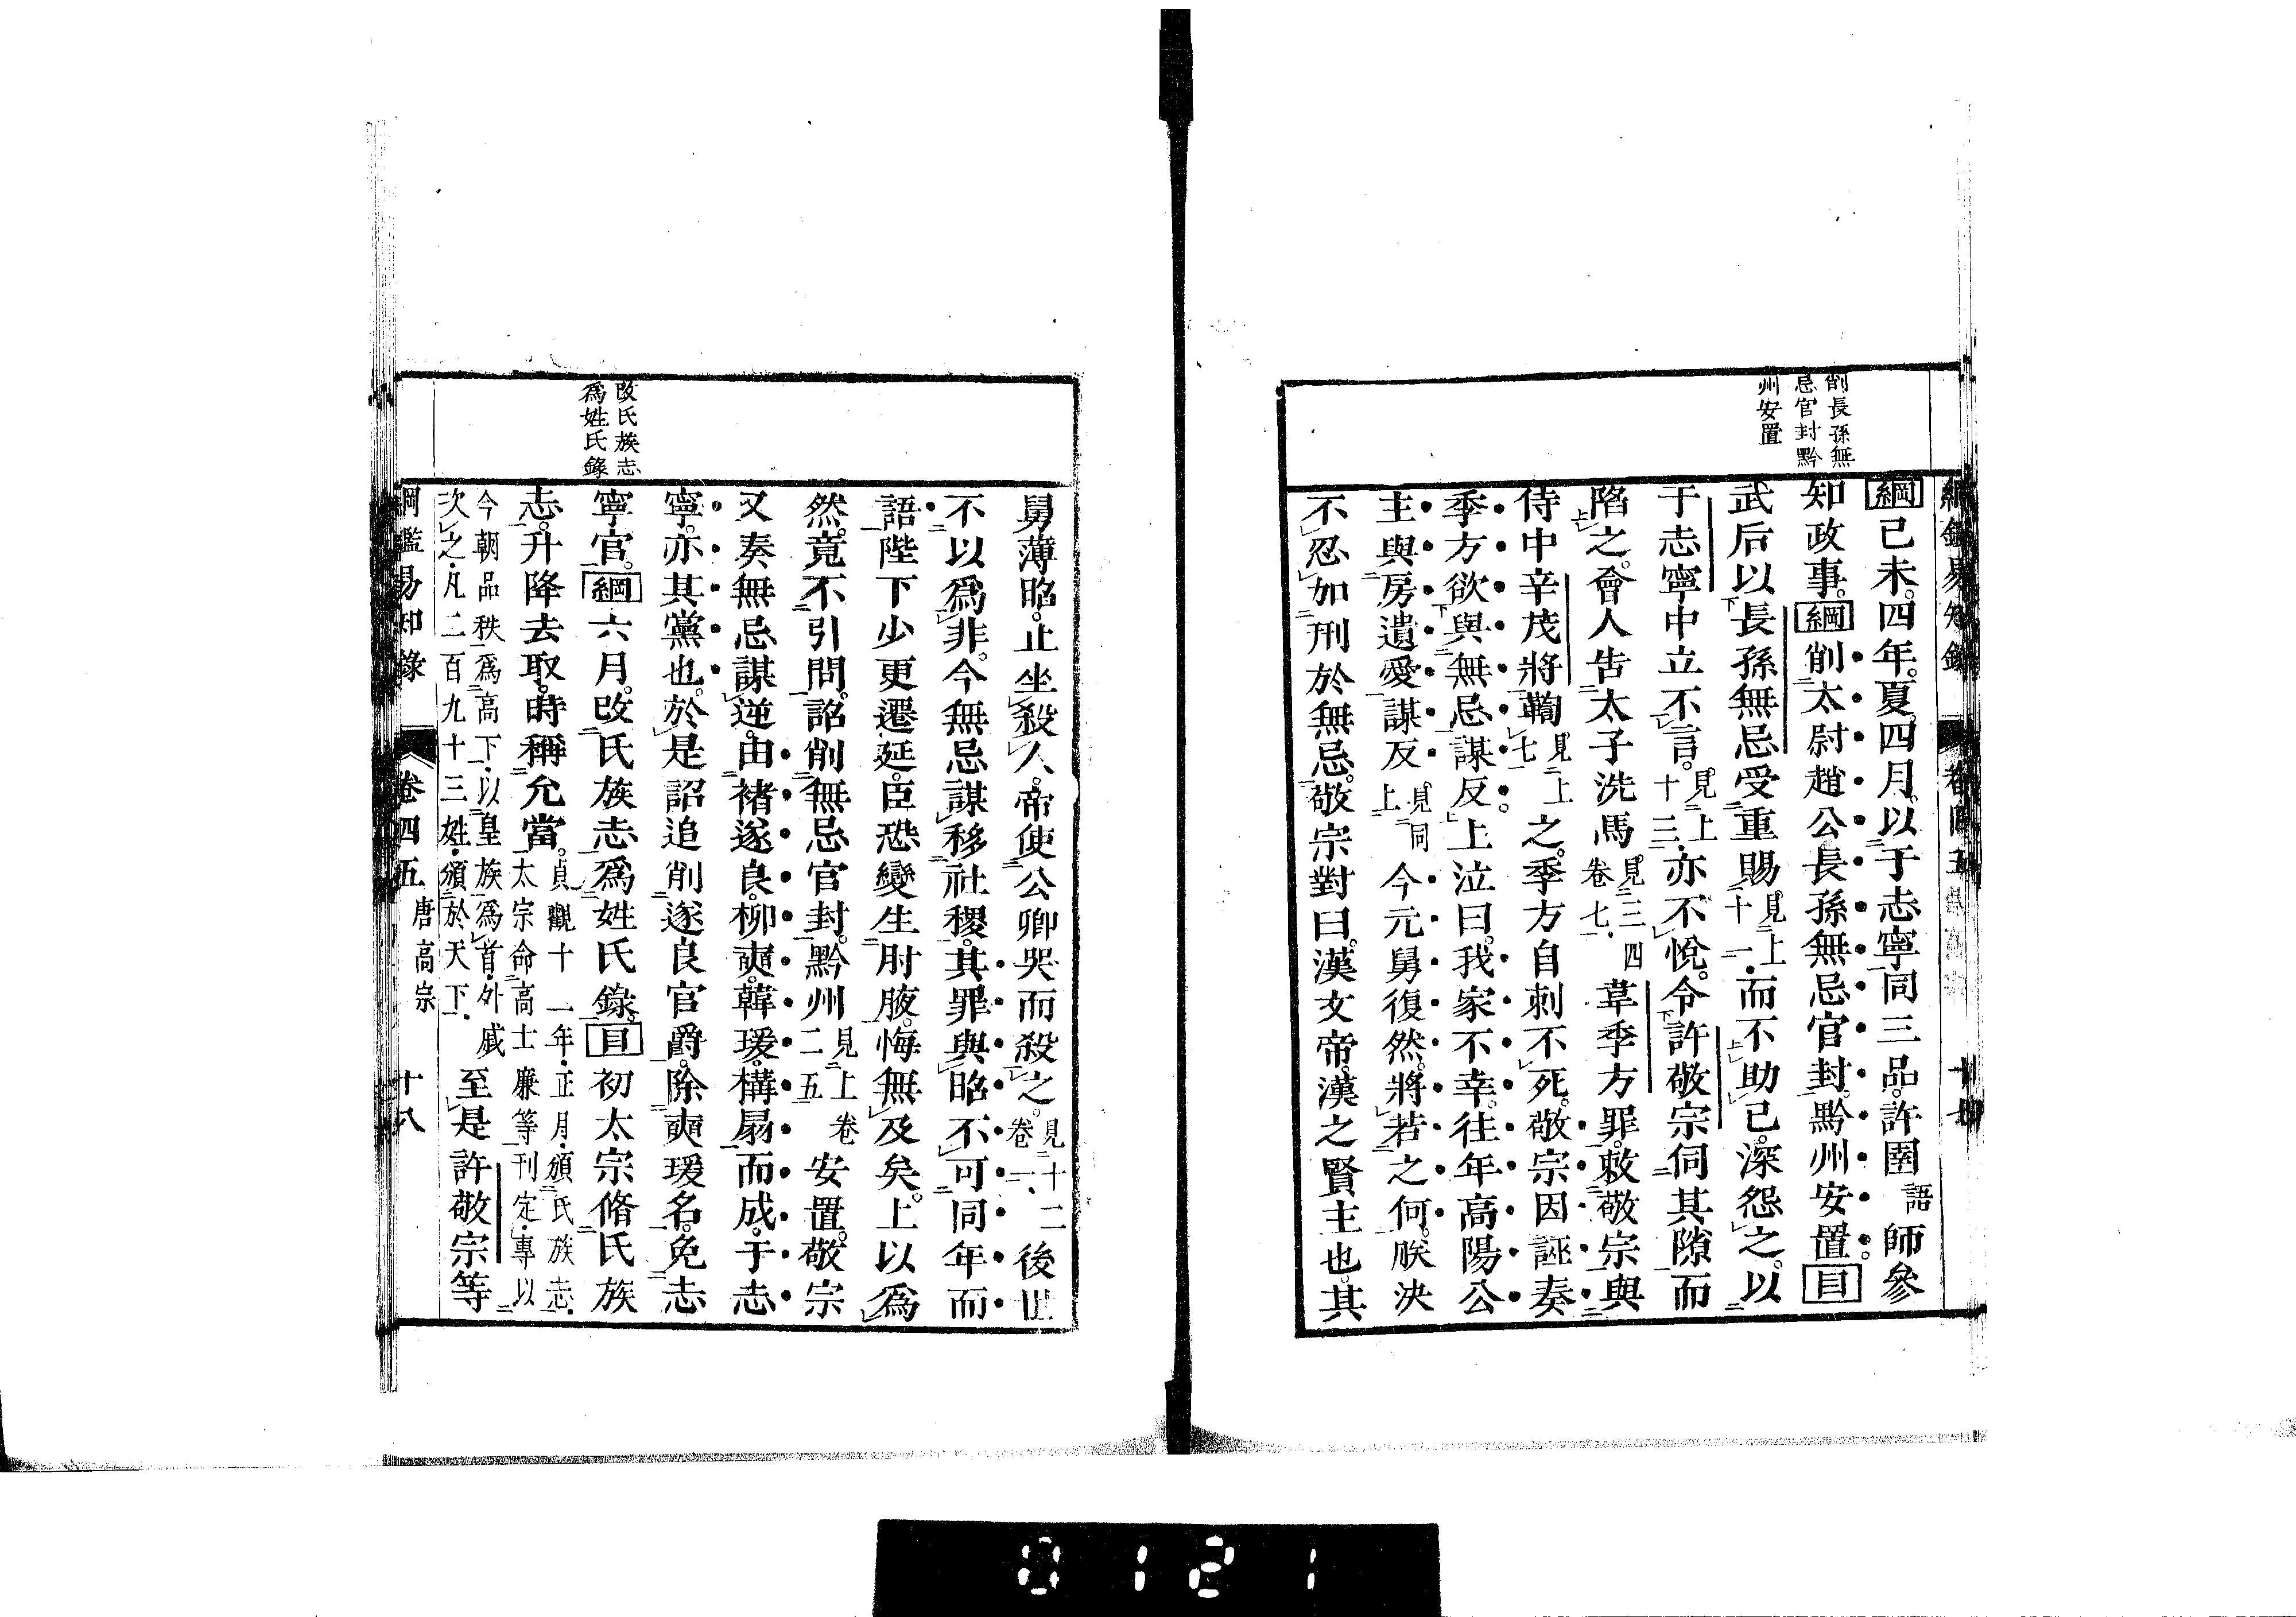 削長孫無
忌官封黔
州安置
綱己未四年夏四月以于志寧同三品許圉語師參
知政事綱削太尉趙公長孫無忌官封黔州安置目
武后以長孫無忌受重賜見上十一而不助己深怨之以
于志寧中立不言見上十三亦不悅令許敬宗伺其隙而
陷之會人告太子洗馬見三四卷七韋季方罪敕敬宗與
侍中辛茂將鞫見上七之季方自刺不死敬宗因誣奏
季方欲與無忌謀反上泣曰我家不幸往年高陽公
主與房遺愛謀反見同上今元舅復然將若之何朕決
不忍加刑於無忌敬宗對曰漢文帝漢之賢主也其
改氏族志
爲姓氏錄
舅薄昭止坐殺人帝使公卿哭而殺之見十二卷一後世
不以爲非今無忌謀移社稷其罪與昭不可同年而
語陛下少更遷延臣恐變生肘腋悔無及矣上以爲
然竟不引問詔削無忌官封黔州見上卷二五安置敬宗
又奏無忌謀逆由褚遂良柳奭韓瑗構扇而成于志
寧亦其黨也於是詔追削遂良官爵除奭瑗名免志
寧官綱六月改氏族志爲姓氏錄目初太宗脩氏族
志升降去取時稱允當貞觀十一年正月頒氏族志太宗命高士廉等刊定專以
今朝品秩爲高下以皇族爲首外戚次之凡二百九十三姓頒於天下至是許敬宗等
綱鑑易知錄 卷四五 唐高宗 十八
0121